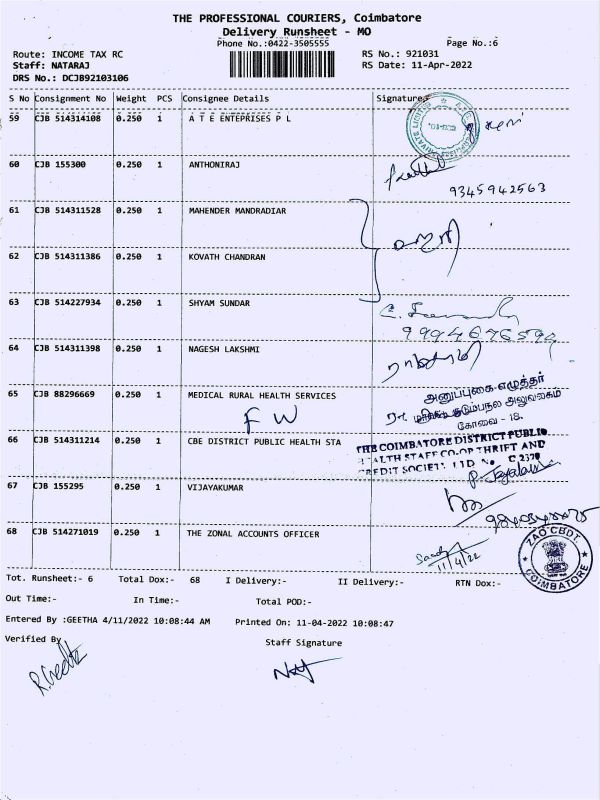 THE PROFESSIONAL COURIERS, Coimbatore
Delivery Runsheet - MO
Phone No.:0422-3505555 Page No.:6
Route: INCOME TAX RC RS No.: 921031
Staff: NATARAJ RS Date: 11-Apr-2022
DRS No.: DCJB92103106
S No Consignment No Weight PCS Consignee Details Signature
59 CJB 514314108 0.250 1 A T E ENTEPRISES P L
60 CJB 155300 0.250 1 ANTHONIRAJ
9345942563
61 CJB 514311528 0.250 1 MAHENDER MANDRADIAR
62 CJB 514311386 0.250 1 KOVATH CHANDRAN
63 CJB 514227934 0.250 1 SHYAM SUNDAR
64 CJB 514311398 0.250 1 NAGESH LAKSHMI
அனுப்புகை எழுத்தர்
65 CJB 88296669 0.250 1 MEDICAL RURAL HEALTH SERVICES
FW
கோவை - 18.
66 CJB 514311214 0.250 1 CBE DISTRICT PUBLIC HEALTH STA
THE COIMBATORE DISTRICT PUBLIC
HEALTH STAFF CO-OP THRIFT AND
CREDIT SOCIETY LTD No C 2370
67 CJB 155295 0.250 1 VIJAYAKUMAR
68 CJB 514271019 0.250 1 THE ZONAL ACCOUNTS OFFICER
11/4/22
ZAO CBDT.
COIMBATORE
Tot. Runsheet:- 6 Total Dox:- 68 I Delivery:- II Delivery:- RTN Dox:-
Out Time:- In Time:- Total POD:-
Entered By :GEETHA 4/11/2022 10:08:44 AM Printed On: 11-04-2022 10:08:47
Verified By Staff Signature
R. Geetha